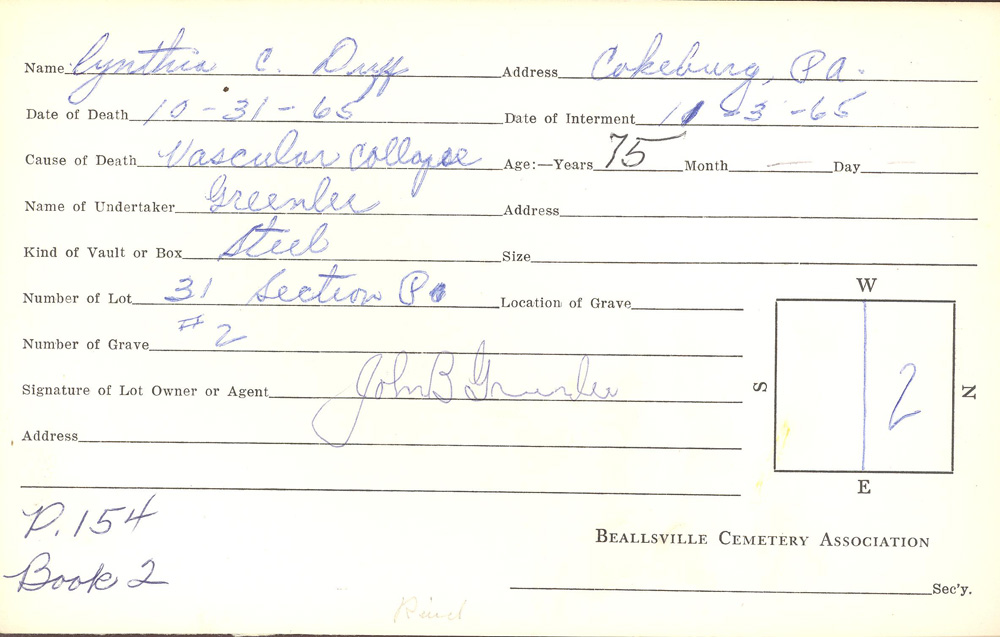 Name Cynthia C. Duff Address Cokeburg, Pa.
Date of Death 10-31-65 Date of Interment 11-3-65
Cause of Death Vascular collapse Age:—Years 75 Month — Day —
Name of Undertaker Greenlee Address
Kind of Vault or Box Steel Size
Number of Lot 31 Section P Location of Grave
Number of Grave #2
Signature of Lot Owner or Agent John B Greenlee
Address
W
S
2
N
E
P. 154
Book 2
BEALLSVILLE CEMETERY ASSOCIATION
Sec'y.